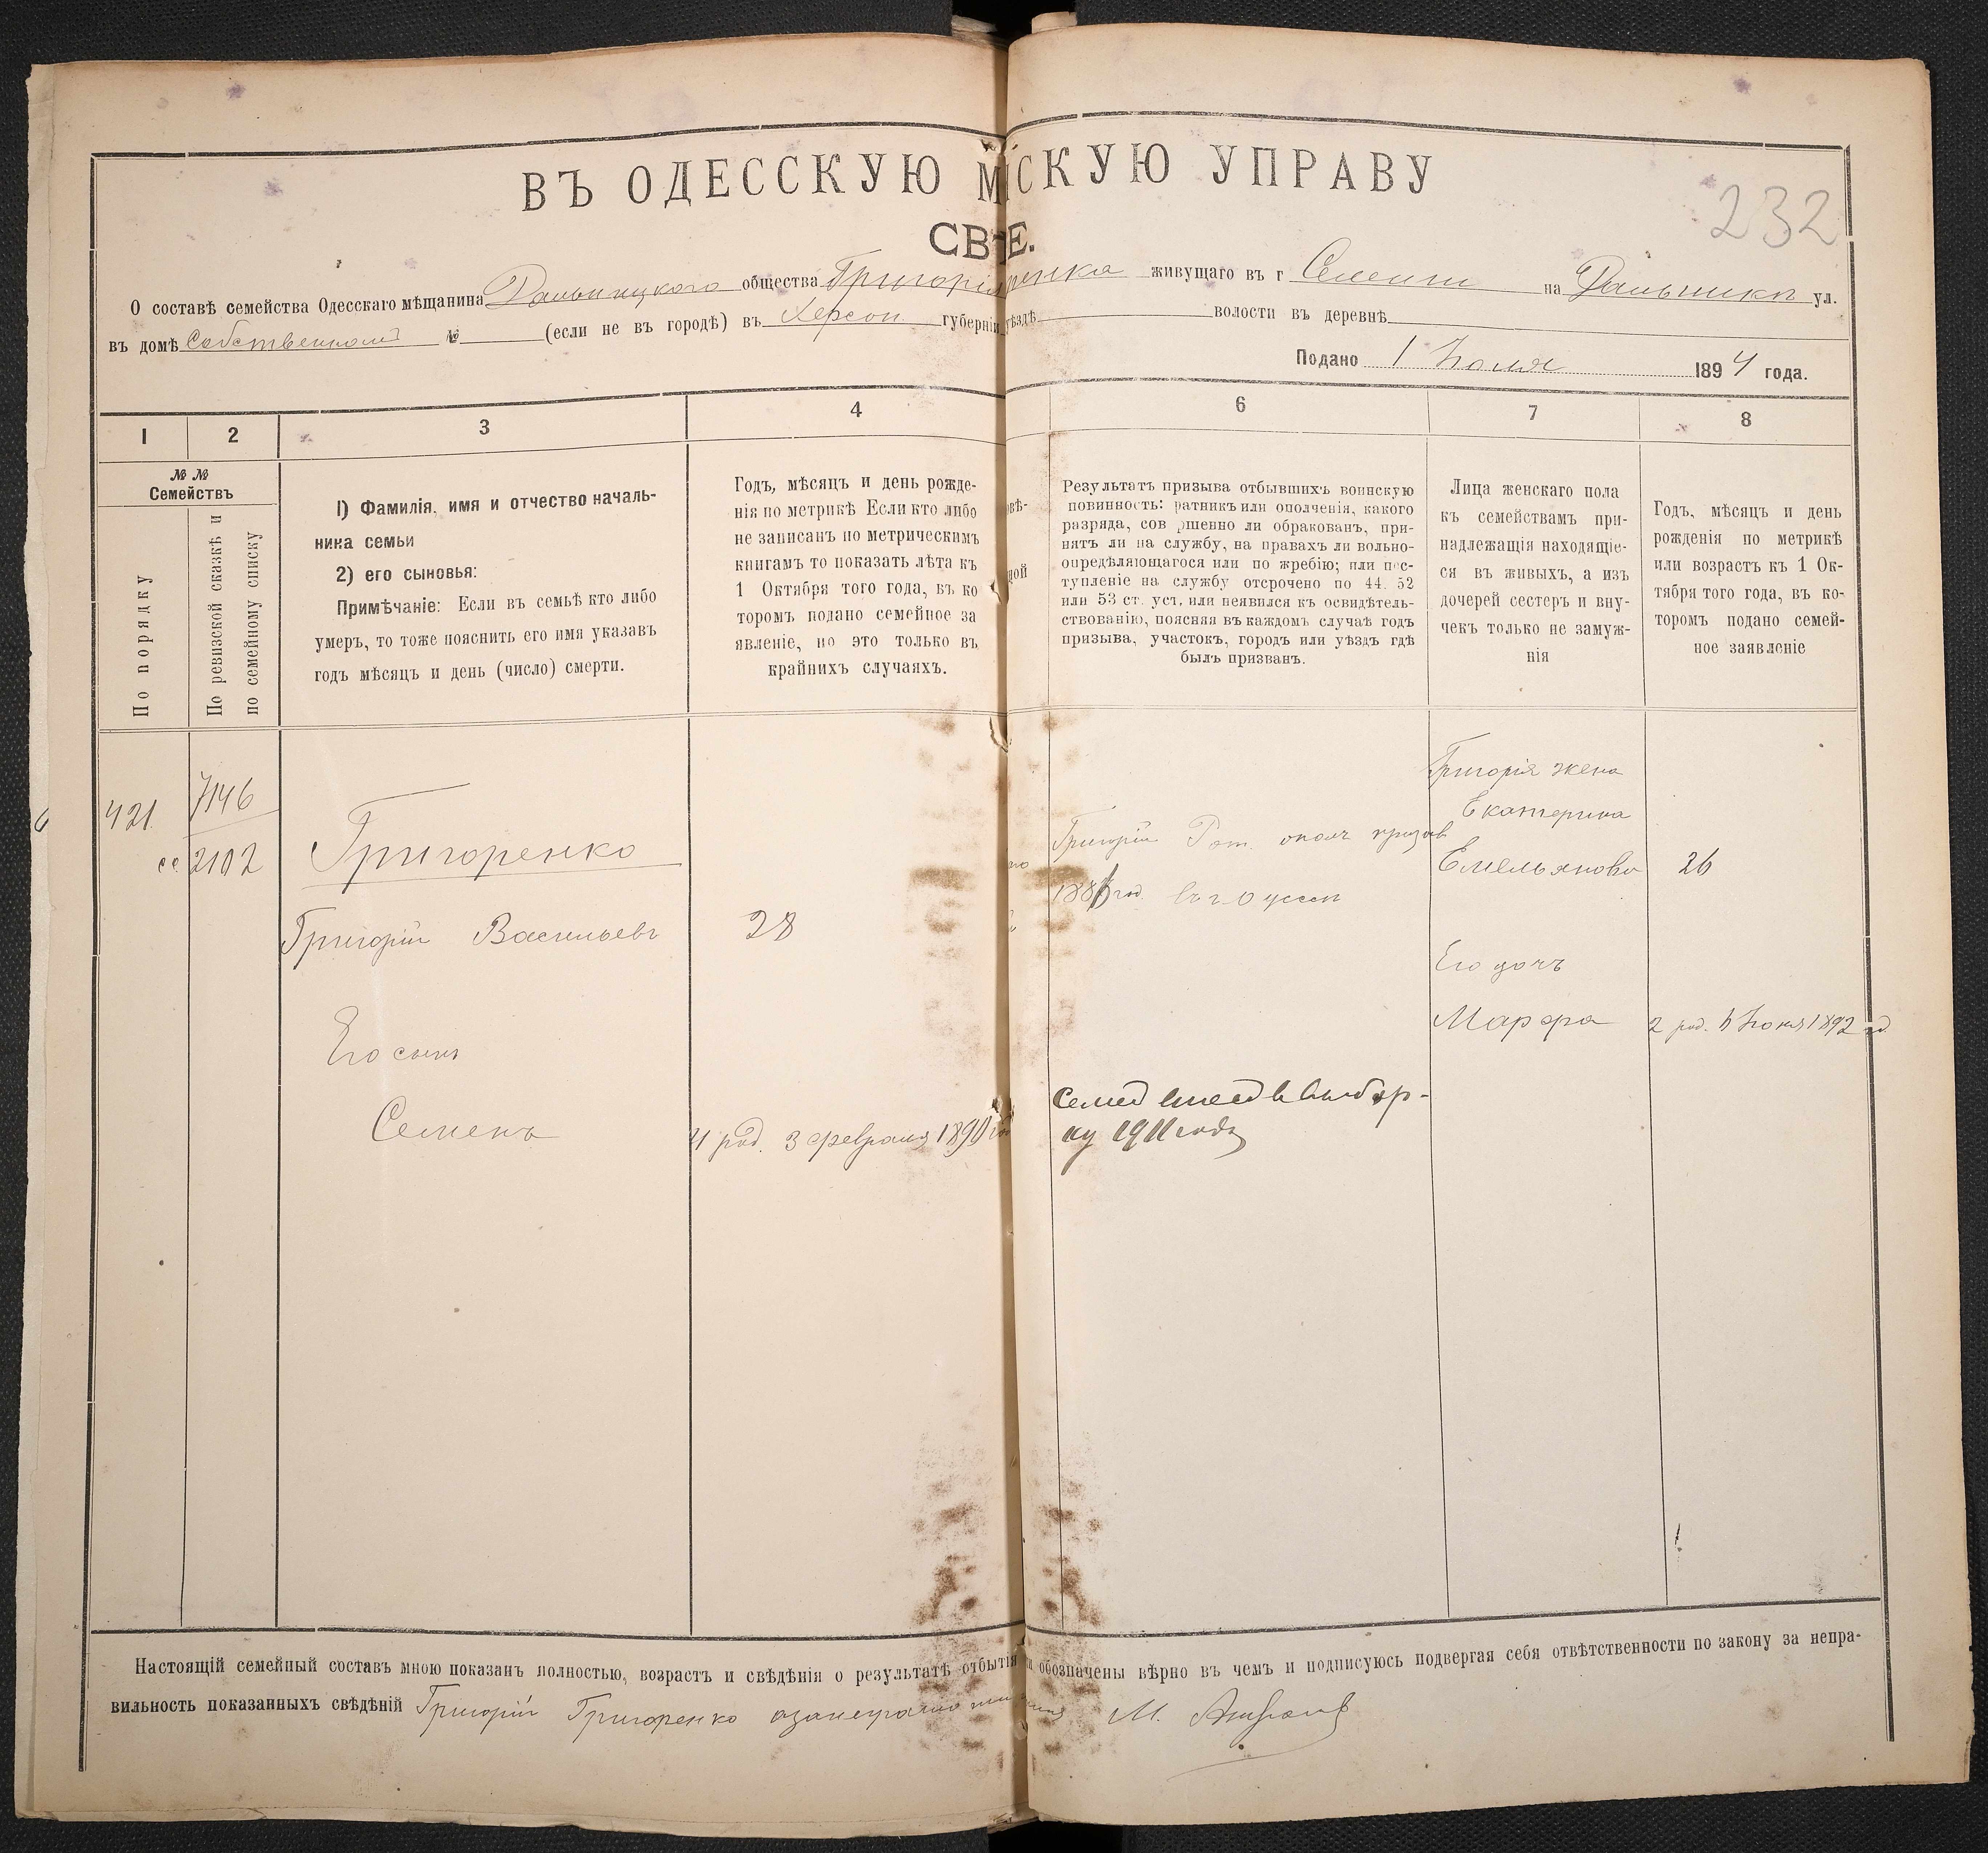 ВЪ ОДЕССКУЮ М СКУЮ УПРАВУ
232
СВ Е.
О составѣ семейства Одесскаго мѣщанина Дальницкаго общества Григорія ренка живущаго въ г Селеніи на Дальникъ ул.
въ домѣ Собственномъ № (если не въ городѣ) въ Херсон. губерніи уѣздѣ волости въ деревнѣ
Подано 1 Іюля 1894 года.
1 2 3 4 6 7 8
№ №
Семействъ
По порядку
По ревизской сказкѣ и
по семейному списку
1) Фамилія, имя и отчество началь-
ника семьи
2) его сыновья:
Примѣчаніе: Если въ семьѣ кто либо
умеръ, то тоже пояснить его имя указавъ
годъ мѣсяцъ и день (число) смерти.
Годъ, мѣсяцъ и день рожде-
нія по метрикѣ Если кто либо
не записанъ по метрическимъ
книгамъ то показать лѣта къ
1 Октября того года, въ ко
торомъ подано семейное за
явленіе, но это только въ
крайнихъ случаяхъ.
Результатъ призыва отбывшихъ воинскую
повинность: ратникъ или ополченія, какого
разряда, сов ршенно ли обракованъ, при-
нятъ ли на службу, на правахъ ли вольно-
опредѣляющагося или по жребію; или пос-
тупленіе на службу отсрочено по 44. 52
или 53 ст. уст. или неявился къ освидѣтель-
ствованію, поясняя въ каждомъ случаѣ годъ
призыва, участокъ, городъ или уѣздъ гдѣ
былъ призванъ.
Лица женскаго пола
къ семействамъ при-
надлежащія находящіе-
ся въ живыхъ, а изъ
дочерей сестеръ и вну-
чекъ только не замуж-
нія
Годъ, мѣсяцъ и день
рожденія по метрикѣ
или возрастъ къ 1 Ок-
тября того года, въ ко-
торомъ подано семей-
ное заявленіе
421.
7146
сс. 2102
Григоренко
Григорій Васильевъ
28
Его сынъ
Семенъ
4 род. 3 февраля 1890 год
Григорій Рат. ополч призыв
год въ г. Одессѣ
Семен внесен в выбор-
ку 1911 года
Григорія жена
Екатерина
Емельянова
26
Его дочь
Марфа
2 род. Іюля 1892 год
Настоящій семейный составъ мною показанъ полностью, возрастъ и свѣдѣнія о результатѣ отбытія обозначены вѣрно въ чемъ и подписуюсь подвергая себя отвѣтственности по закону за непра-
вильность показанныхъ свѣдѣній Григорій Григоренко М.